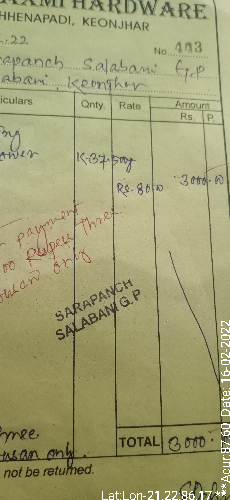 AXMI HARDWARE
HHENAPADI, KEONJHAR
.22
No. 443
rapanch Salabani G.P
labani, Keonjhar
iculars Qnty. Rate Amount
Rs. P.
K-37.500g
Rs. 80.00 3000.00
payment
00 Rupees Three
only
SARAPANCH
SALABANI G.P
TOTAL 3000
only.
not be returned.
Lat:Lon-21.22,86.17,***Acu:87.60 Date: 16-02-2022